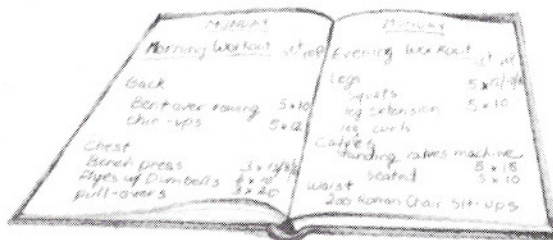 MONDAY
Morning Workout set rep
Back
Bent over rowing 5x10
chin-ups
Chest
Bench press
flyes w/ Dumbells
pull-overs
MONDAY
Evening Workout set rep
Legs
Squats
leg extension 5x10
leg curls
Calves
standing calves machine
seated 5x10
Waist
200 Roman Chair Sit-ups